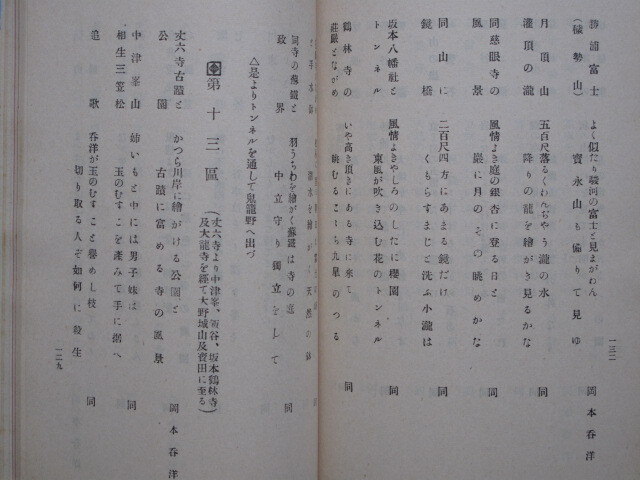 勝浦富士
(穢勢山)
よく似たり駿河の富士と見まがわん
寶永山も備りて見ゆ
岡本呑洋
月頂山
灌頂の瀧
五百尺落るくわんぢやう瀧の水
降りの龍を繪がき見るかな
同
同慈眼寺の
風景
風情よき庭の銀杏に登る日と
巖に月のその眺めかな
同
同山に
鏡橋
二百尺四方にあまる鏡だけ
くもらすまじと洗ふ小瀧は
同
坂本八幡社と
トンネル
風情よきやしろのしたに櫻園
東風が吹き込む花のトンネル
同
鶴林寺の
莊嚴とながめ
いや高き頂きにある寺に來て
眺むるこゝち九皐のつる
同
同寺の蘇鐵と
政界
羽うちわを繪がく蘇鐵は寺の意
中立守り獨立をして
同
△是よりトンネルを通して鬼龍野へ出づ
第十三區
(丈六寺より中津峯、新谷、坂本鶴林寺
及大龍寺を經て大野城山及賓田に至る)
丈六寺古蹟と
公園
かつら川岸に繪がける公園と
古蹟に富める寺の風景
岡本呑洋
中津峯山
相生三笠松
姉いもと中には男子妹は
玉のむすこを產みて手に据へ
同
追歌
呑洋が玉のむすこと譽めし枝
切り取る人ぞ如何に發生
同
一二九